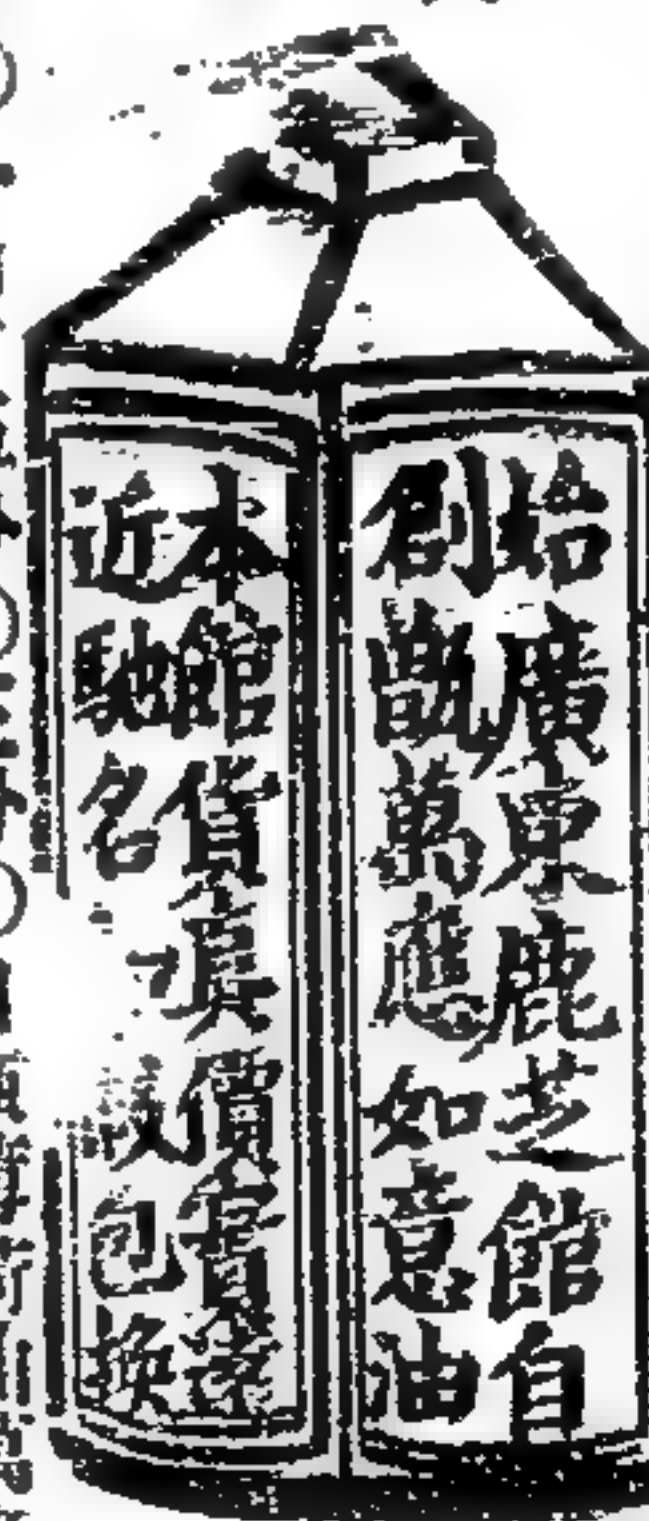 始廣東鹿芝館自
創甑萬應如意油
本館貨真價實遠
近馳名
包換